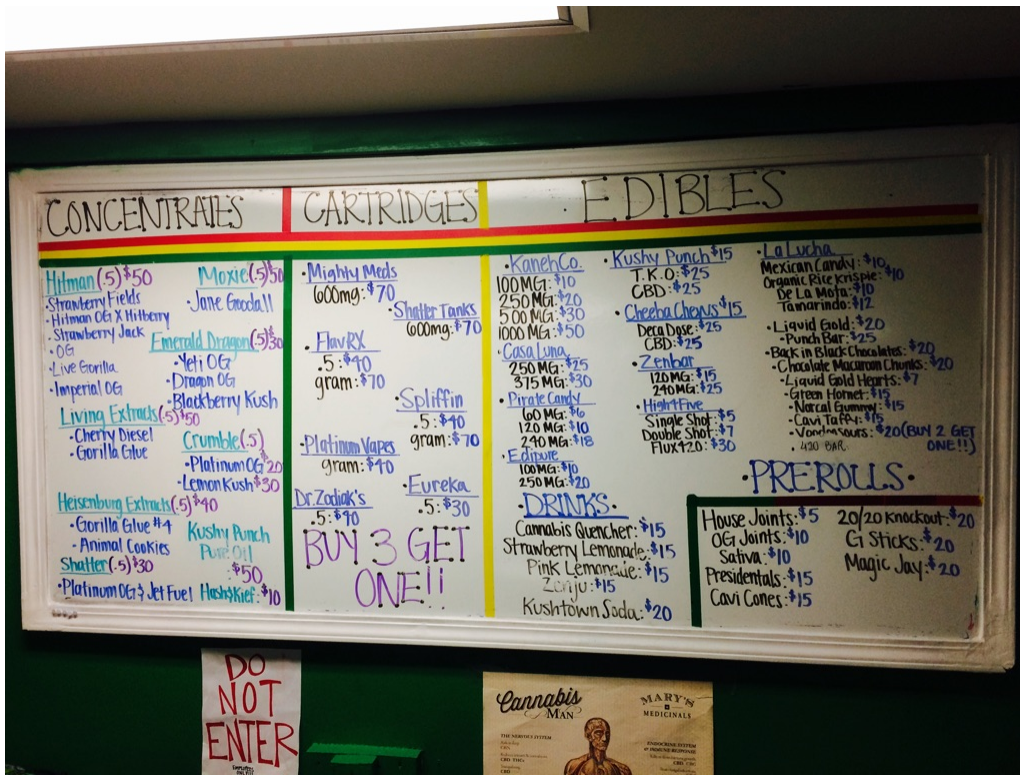 CONCENTRATES
Hitman (.5) $50
• Strawberry Fields
• Hitman OG X Hilberry
• Strawberry Jack
• OG
• Live Gorilla
• Imperial OG
Living Extracts (.5) $50
• Cherry Diesel
• Gorilla Glue
Heisenburg Extracts (.5) $40
• Gorilla Glue #4
• Animal Cookies
Shatter (.5) $30
• Platinum OG & Jet Fuel
Moxie (.5) $50
• Jane Goodall
Emerald Dragon (.5) $30
• Yeti OG
• Dragon OG
• Blackberry Kush
Crumble (.5)
• Platinum OG $20
• Lemon Kush $30
Kushy Punch
Pure Oil
: $50
Hash & Kief: $10
CARTRIDGES
• Mighty Meds
600mg: $70
• Shatter Tanks
600mg: $70
• FlavRX
.5: $40
gram: $70
• Spliffin
.5: $40
gram: $70
• Platinum Vapes
gram: $40
• Eureka
.5: $30
Dr. Zodiak's
.5: $90
BUY 3 GET
ONE!!
• EDIBLES
• KanehCo.
100 MG: $10
250 MG: $20
500 MG: $30
1000 MG: $50
• Casa Luna
250 MG: $25
375 MG: $30
• Pirate Candy
60 MG: $6
120 MG: $10
240 MG: $18
• Edipure
100MG: $10
250 MG: $20
• DRINKS •
Cannabis Quencher: $15
Strawberry Lemonade: $15
Pink Lemonade: $15
Zenju: $15
Kushtown Soda: $20
• Kushy Punch $15
T.K.O: $25
CBD: $25
• Cheeba Chews $15
Deca Dose: $25
CBD: $25
• Zenbar
120 MG: $15
240 MG: $25
• High Five
Single Shot: $5
Double Shot: $7
Flux420: $30
• La Lucha
Mexican Candy: $10
Organic Rice Krispie: $10
De La Mota: $10
Tamarindo: $12
• Liquid Gold: $20
• Punch Bar: $25
• Back in Black Chocolates: $20
• Chocolate Macaroon Chunks: $20
• Liquid Gold Hearts: $7
• Green Hornet: $15
• Norcal Gummy: $15
• Cavi Taffy: $15
• Vondasours: $20 (BUY 2 GET
ONE!!)
• 420 BAR
• PREROLLS •
House Joints: $5
OG Joints: $10
Sativa: $10
Presidentals: $15
Cavi Cones: $15
20/20 Knockout: $20
G Sticks: $20
Magic Jay: $20
DO
NOT
ENTER
Cannabis
MAN
MARY'S
MEDICINALS
THE NERVOUS SYSTEM
ENDOCRINE SYSTEM
& IMMUNE RESPONSE